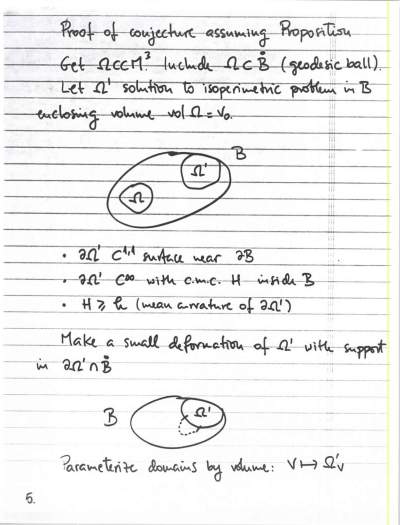 Proof of conjecture assuming Proposition
Get Ω⊂⊂M³. Include Ω ⊂ B̊ (geodesic ball).
Let Ω' solution to isoperimetric problem in B
enclosing volume vol Ω = V₀.
B
Ω'
Ω
• ∂Ω' C¹,¹ surface near ∂B
• ∂Ω' C∞ with c.m.c. H inside B
• H ≥ h (mean curvature of ∂Ω')
Make a small deformation of Ω' with support
in ∂Ω' ∩ B̊
B
Ω'
Parameterize domains by volume: V ↦ Ω'ᵥ
5.